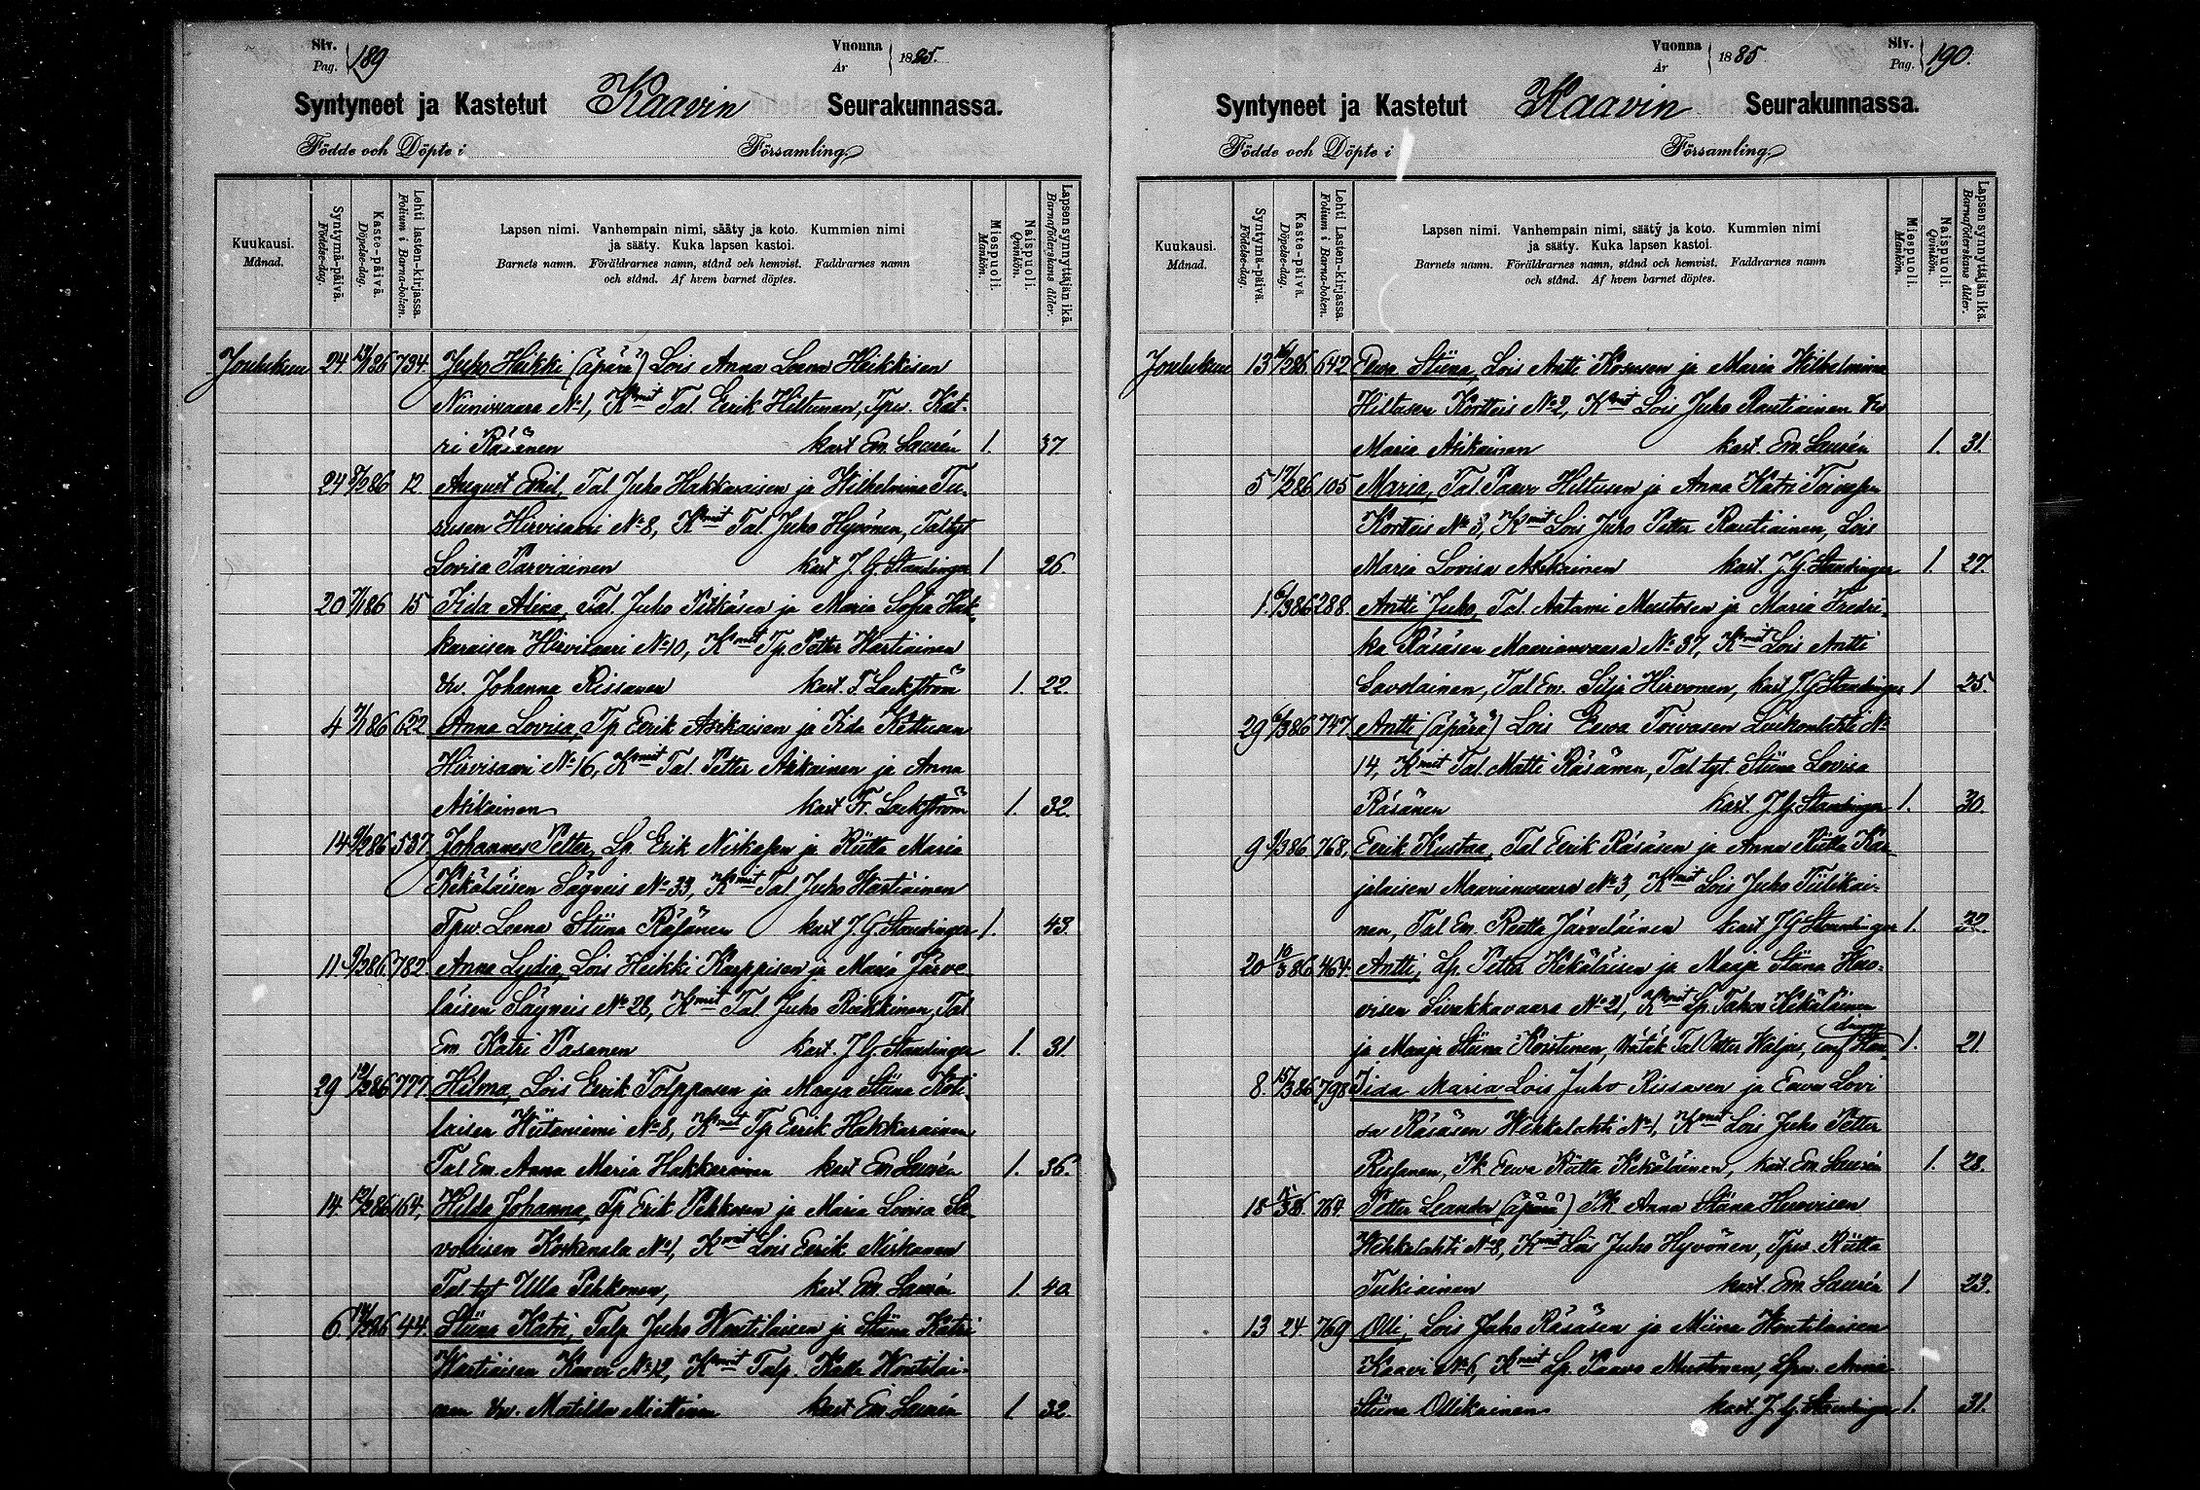 Siv. Pag. 189
Vuonna År 1885.
Syntyneet ja Kastetut Kaavin Seurakunnassa.
Födde och Döpte i Församling
Kuukausi. Månad.
Syntymä-päivä. Födelse-dag.
Kaste-päivä. Döpelse-dag.
Lehti lasten-kirjassa. Folium i Barna-boken.
Lapsen nimi. Vanhempain nimi, sääty ja koto. Kummien nimi
ja sääty. Kuka lapsen kastoi.
Barnets namn. Föräldrarnes namn, stånd och hemvist. Faddrarnes namn
och stånd. Af hvem barnet döptes.
Miespuoli. Mankön.
Naispuoli. Qvinkön.
Lapsen synnyttäjän ikä. Barnaföderskans ålder.
Joulukuu 24 734. Juho Heikki (äpärä) Lois Anna Leena Heikkisen
Niinivaara No 1, Kmit Tal. Eerik Hiltunen, Tpv. Kat-
ri Räsänen kast Em. Laurén 1. 37
24 12 August Emil, Tal Juho Hakkaraisen ja Wilhelmina Tu-
Hirvisaari No 8, Kmit Tal. Juho Hyvönen, Tal tyt
Lovisa Parviainen kast J. G. Standinger 1 26.
20 15 Iida Alina, Tal. Juho Pitkäsen ja Maria Sofia Hak-
karaisen Hirvisaari No 10, Kmit Tp. Petter Wartiainen
Johanna Rissanen kast. F. Lackström 1. 22.
4 622 Anna Lovisa, Tp Eerik Asikaisen ja Iida Kettusen
Hirvisaari No 16, Kmit Tal. Petter Asikainen ja Anna
Asikainen kast Fr. Lackström 1. 32.
14 537 Johannes Petter, Lp. Erik Niskasen ja Riitta Maria
Kekäläisen Säyneis No 33, Kmit Tal Juho Wartiainen
Tpv. Leena Stiina Räsänen kast J. G. Standinger 1. 43.
11 782 Anna Lydia, Lois Heikki Karppisen ja Maria Järve-
läisen Säyneis No 28, Kmit Tal Juho Räikkinen, Tal
Em. Katri Pasanen kast. J. G. Standinger 1. 31
29 777. Hilma, Lois Eerik Tolppasen ja Maaja Stiina Koti-
laisen Wiitaniemi No 8, Kmit Tp Eerik Hakkarainen
Tal Em. Anna Maria Hakkarainen kast Em Laurén 1. 36.
14. 164, Hilda Johanna, Tp Erik Pekkosen ja Maria Lovisa Sa-
volaisen Koskenala No 1, Kmit Lois Eerik Niskanen
Tal tyt Ulla Pekkonen, kast. Em. Laurén 1. 40.
6. 44. Stiina Katri, Talp Juho Wentilaisen ja Stiina Katri
Wartiaisen Kaavi No 12, Kmit Talp. Kalle Wentilai-
nen Matilda Miettinen kast Em. Laurén 1. 32.
Vuonna År 1885.
Siv. Pag. 190.
Syntyneet ja Kastetut Kaavin Seurakunnassa.
Födde och Döpte i Församling
Kuukausi. Månad.
Syntymä-päivä. Födelse-dag.
Kaste-päivä. Döpelse-dag.
Lehti Lasten-kirjassa. Folium i Barna-boken.
Lapsen nimi. Vanhempain nimi, sääty ja koto. Kummien nimi
ja sääty. Kuka lapsen kastoi.
Barnets namn. Föräldrarnes namn, stånd och hemvist. Faddrarnes namn
och stånd. Af hvem barnet döptes.
Miespuoli. Mankön.
Naispuoli. Qvinkön.
Lapsen synnyttäjän ikä. Barnaföderskans ålder.
Joulukuu 13 642 Eeva Stiina, Lois Antti Kososen ja Maria Wilhelmina
Hiltusen Kortteis No 2, Kmit Lois Juho Rautiainen
Maria Asikainen kast. Em. Laurén 1. 31.
5 105 Maria, Tal Paavo Hiltusen ja Anna Katri Toivasen
Kortteis No 3, Kmit Lois Juho Petter Rautiainen, Lois
Maria Lovisa Asikainen kast. J. G. Standinger 1. 27.
1. 288. Antti Juho, Tal. Aatami Mustosen ja Maria Fredri-
ka Räsäsen Maarianvaara No 37, Kmit Lois Antti
Savolainen, Tal Em. Silja Hirvonen, kast J. G Standinger 1 25.
29 747. Antti (äpärä) Lois Eeva Toivasen Luikonlahti No
14, Kmit Tal. Matti Räsänen, Tal. tyt. Stiina Lovisa
Räsänen kast. J. G. Standinger 1. 30.
9 768, Eerik Kustaa, Tal Eerik Räsäsen ja Anna Riitta Kar
jalaisen Maarianvaara No 3, Kmit Lois Juho Tiilikai-
nen, Tal Em. Reetta Järveläinen kast J G Standinger 1.
20 464. Antti, Lp. Petter Kekäläisen ja Maaja Stiina Huo-
visen Sivakkavaara No 21, Kmit Lp. Taavi Kekäläinen
ja Maaja Stiina Korttenen, 1. 21.
8. 798 Iida Maria Lois Juho Rissasen ja Eeva Lovi
sa Räsäsen Wehkalahti No 1, Kmit Lois Juho Petter
Rissanen, Pk Eeva Riitta Kekäläinen, kast. Em. Laurén 1. 28.
18 764. Petter Leander (äpärä) Pk. Anna Stiina Huovisen
Wehkalahti No 8, Kmit Lois Juho Hyvönen, Tpv. Riitta
Tukiainen kast. Em. Laurén 1 23.
13 24 769 Olli, Lois Juho Räsäsen ja Miina Wentilaisen
Kaavi No 6, Kmit Lp. Paavo Mustonen, Lpv. Anna
Stiina Ollikainen kast. J. G. Standinger 1. 31.